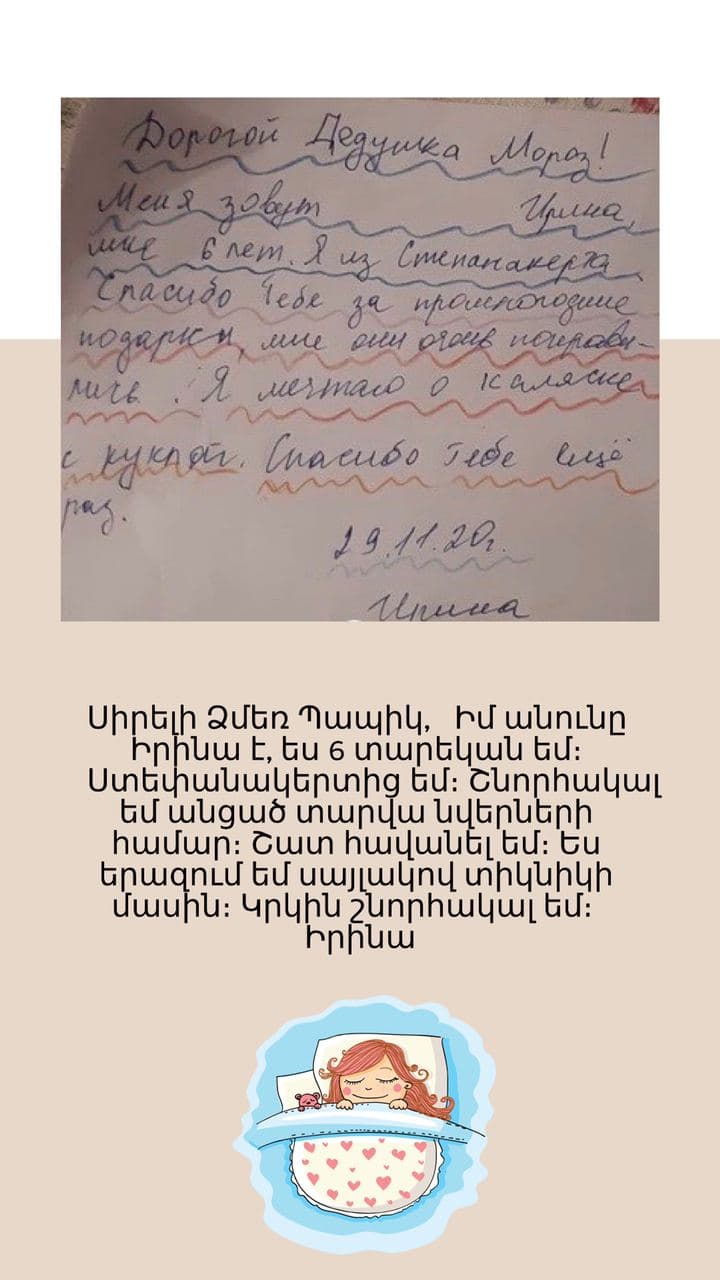 Дорогой Дедушка Мороз!
Меня зовут Ирина,
мне 6 лет. Я из Степанакерта.
Спасибо Тебе за прошлогодние
подарки, мне они очень понрави-
лись. Я мечтаю о каляске
с куклой. Спасибо Тебе ещё
раз.
29.11.20г.
Ирина
Սիրելի Ձմեռ Պապիկ, Իմ անունը
Իրինա է, ես 6 տարեկան եմ։
Ստեփանակերտից եմ։ Շնորհակալ
եմ անցած տարվա նվերների
համար։ Շատ հավանել եմ։ Ես
երազում եմ սայլակով տիկնիկի
մասին։ Կրկին շնորհակալ եմ։
Իրինա